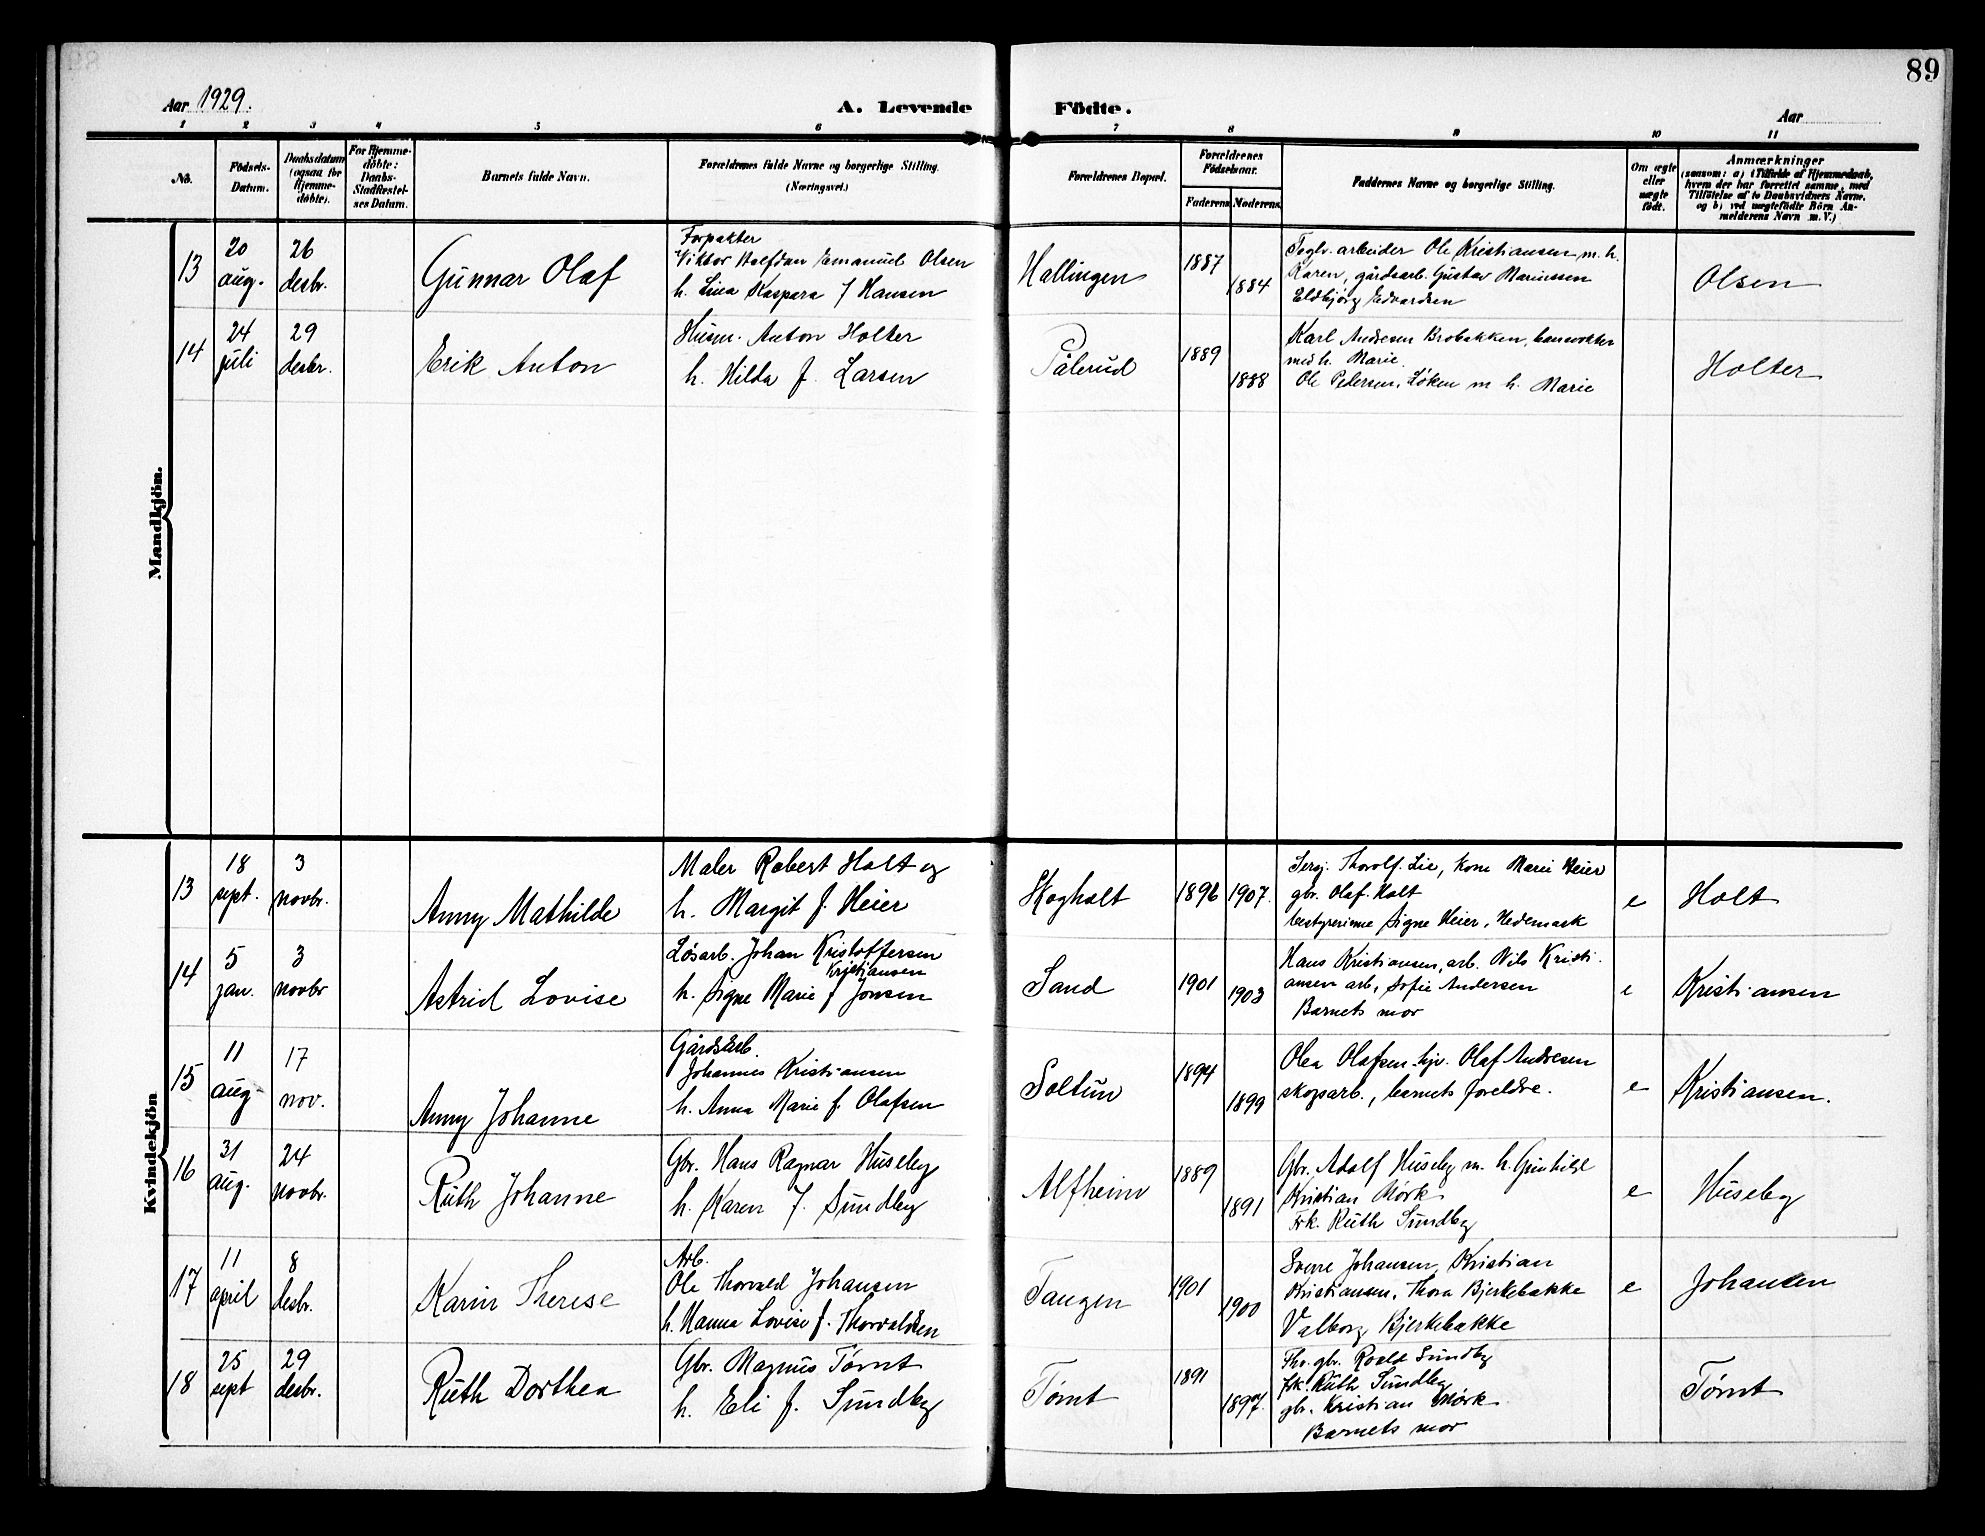 89
Aar 1929.
A. Levende
Födte.
Aar
1 2 3 4 5 6 7 8 9 10 11
No.
Födsels-
Datum.
Daabsdatum
(ogsaa for
Hjemme-
döbte).
For Hjemme-
döbte:
Daabs-
Stadfæstel-
ses Datum.
Barnets fulde Navn.
Forældrenes fulde Navne og borgerlige Stilling.
(Næringsvei.)
Forældrenes Bopæl.
Forældrenes
Födselsaar.
Faderens Moderens
Faddernes Navne og borgerlige Stilling.
Om ægte
eller
uægte
födt.
Anmærkninger
(saasom: a) i Tilfælde af Hjemmedaab,
hvem der har forrettet samme, med
Tilföielse af to Daabsvidners Navne,
og b) ved uægtefödte Börn An-
melderens Navn m. V.)
Mandkjön.
13
20
aug.
26
desbr.
Gunnar Olaf
Forpakter
Viktor Halfdan Emanuel Olsen
h. Lina Kaspara f Hansen
Hallingen
1887
1884
Teglv. arbeider Ole Kristiansen m. h.
Karen, gårdsarb. Gustav Marinssen
Eldbjørg Edvardsen
Olsen
14
24
juli
29
desbr.
Erik Anton
Husm. Anton Holter
h. Hilda f. Larsen
Pålerud
1889
1888
Karl Andresen Brobakken, banevokter
med h. Marie
Ole Pedersen, Løken m h. Marie
Holter
Kvindekjön
13
18
sept.
3
novbr.
Anny Mathilde
Maler Robert Holt og
h. Margit f. Heier
Skogholt
1896
1907.
Sersj. Thorolf Lie, kone Marie Heier
gbr. Olaf Holt
bestyrerinne Signe Heier, Hedemark
e
Holt
14
5
jan.
3
novbr
Astrid Lovise
Løsarb. Johan Kristoffersen
Kristiansen
h. Signe Marie f Jonsen
Sand
1901
1903
Hans Kristiansen, arb. Nils Kristi-
ansen arb, Sofie Andersen
Barnets mor
e
Kristiansen
15
11
aug-
17
nov.
Anny Johanne
Gårdsarb.
Johannes Kristiansen
h. Anna Marie f. Olafsen
Soltun
1894
1899
Olea Olafsen. hjv. Olaf Andresen
skogsarb., barnets foreldre.
e
Kristiansen.
16
31
aug.
24
novbr.
Ruth Johanne
Gbr. Hans Ragnar Huseby
h. Karen f. Sundby
Alfheim
1889
1891
Gbr. Adolf Huseby m. h. Gunhild
Kristian Mørk
Frk. Ruth Sundby
e
Huseby
17
11
april
8
desbr.
Karin Therese
Arb.
Ole Thorvald Johansen
h. Hanna Lovise f. Thorvaldsen
Tangen
1901
1900
Sverre Johansen, Kristian
Kristiansen, Thora Bjerkebakke
Valborg Bjerkebakke
e
Johansen
18
25
sept
29
desbr.
Ruth Dorthea
Gbr. Magnus Tømt
h. Eli f. Sundby
Tømt
1891
1897.
Thv. gbr. Roald Sundby
frk. Ruth Sundby
gbr. Kristian Mørk
Barnets mor
Tømt